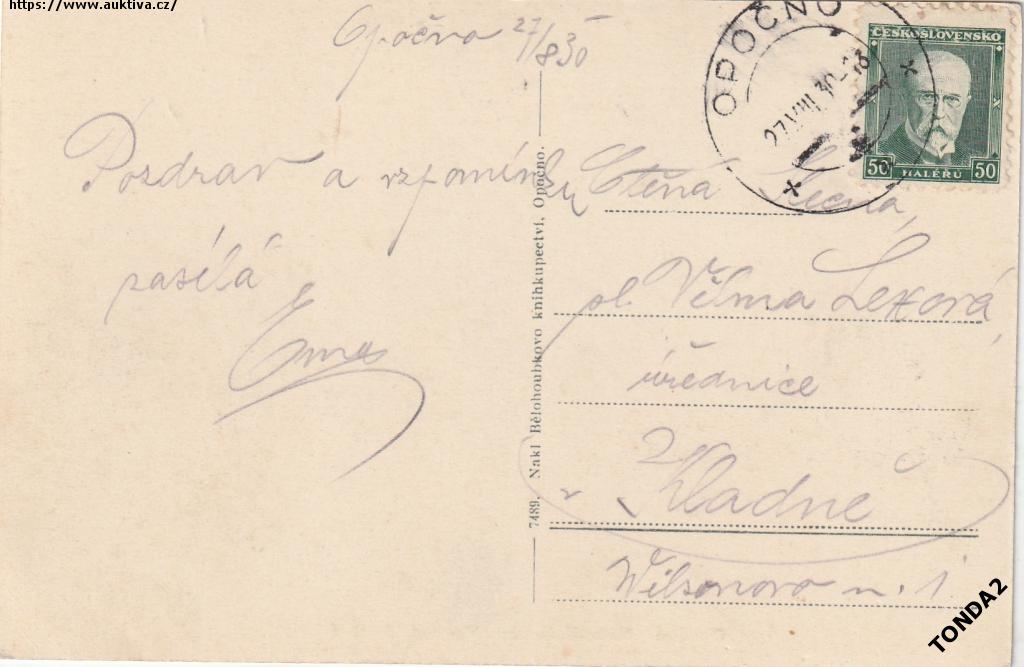 https://www.auktiva.cz/
Opočno 27/8 30
Pozdrav a vzpomínku
zasílá
Ema
7489. Nakl Bělohoubkovo knihkupectví, Opočno.
OPOČNO
27.VIII.30
ČESKOSLOVENSKO
50 HALÉŘŮ 50
Ctěná slečna,
sl. Věrma Lexová,
úřednice
v Kladně
Wilsonovo n. 1
TONDA2